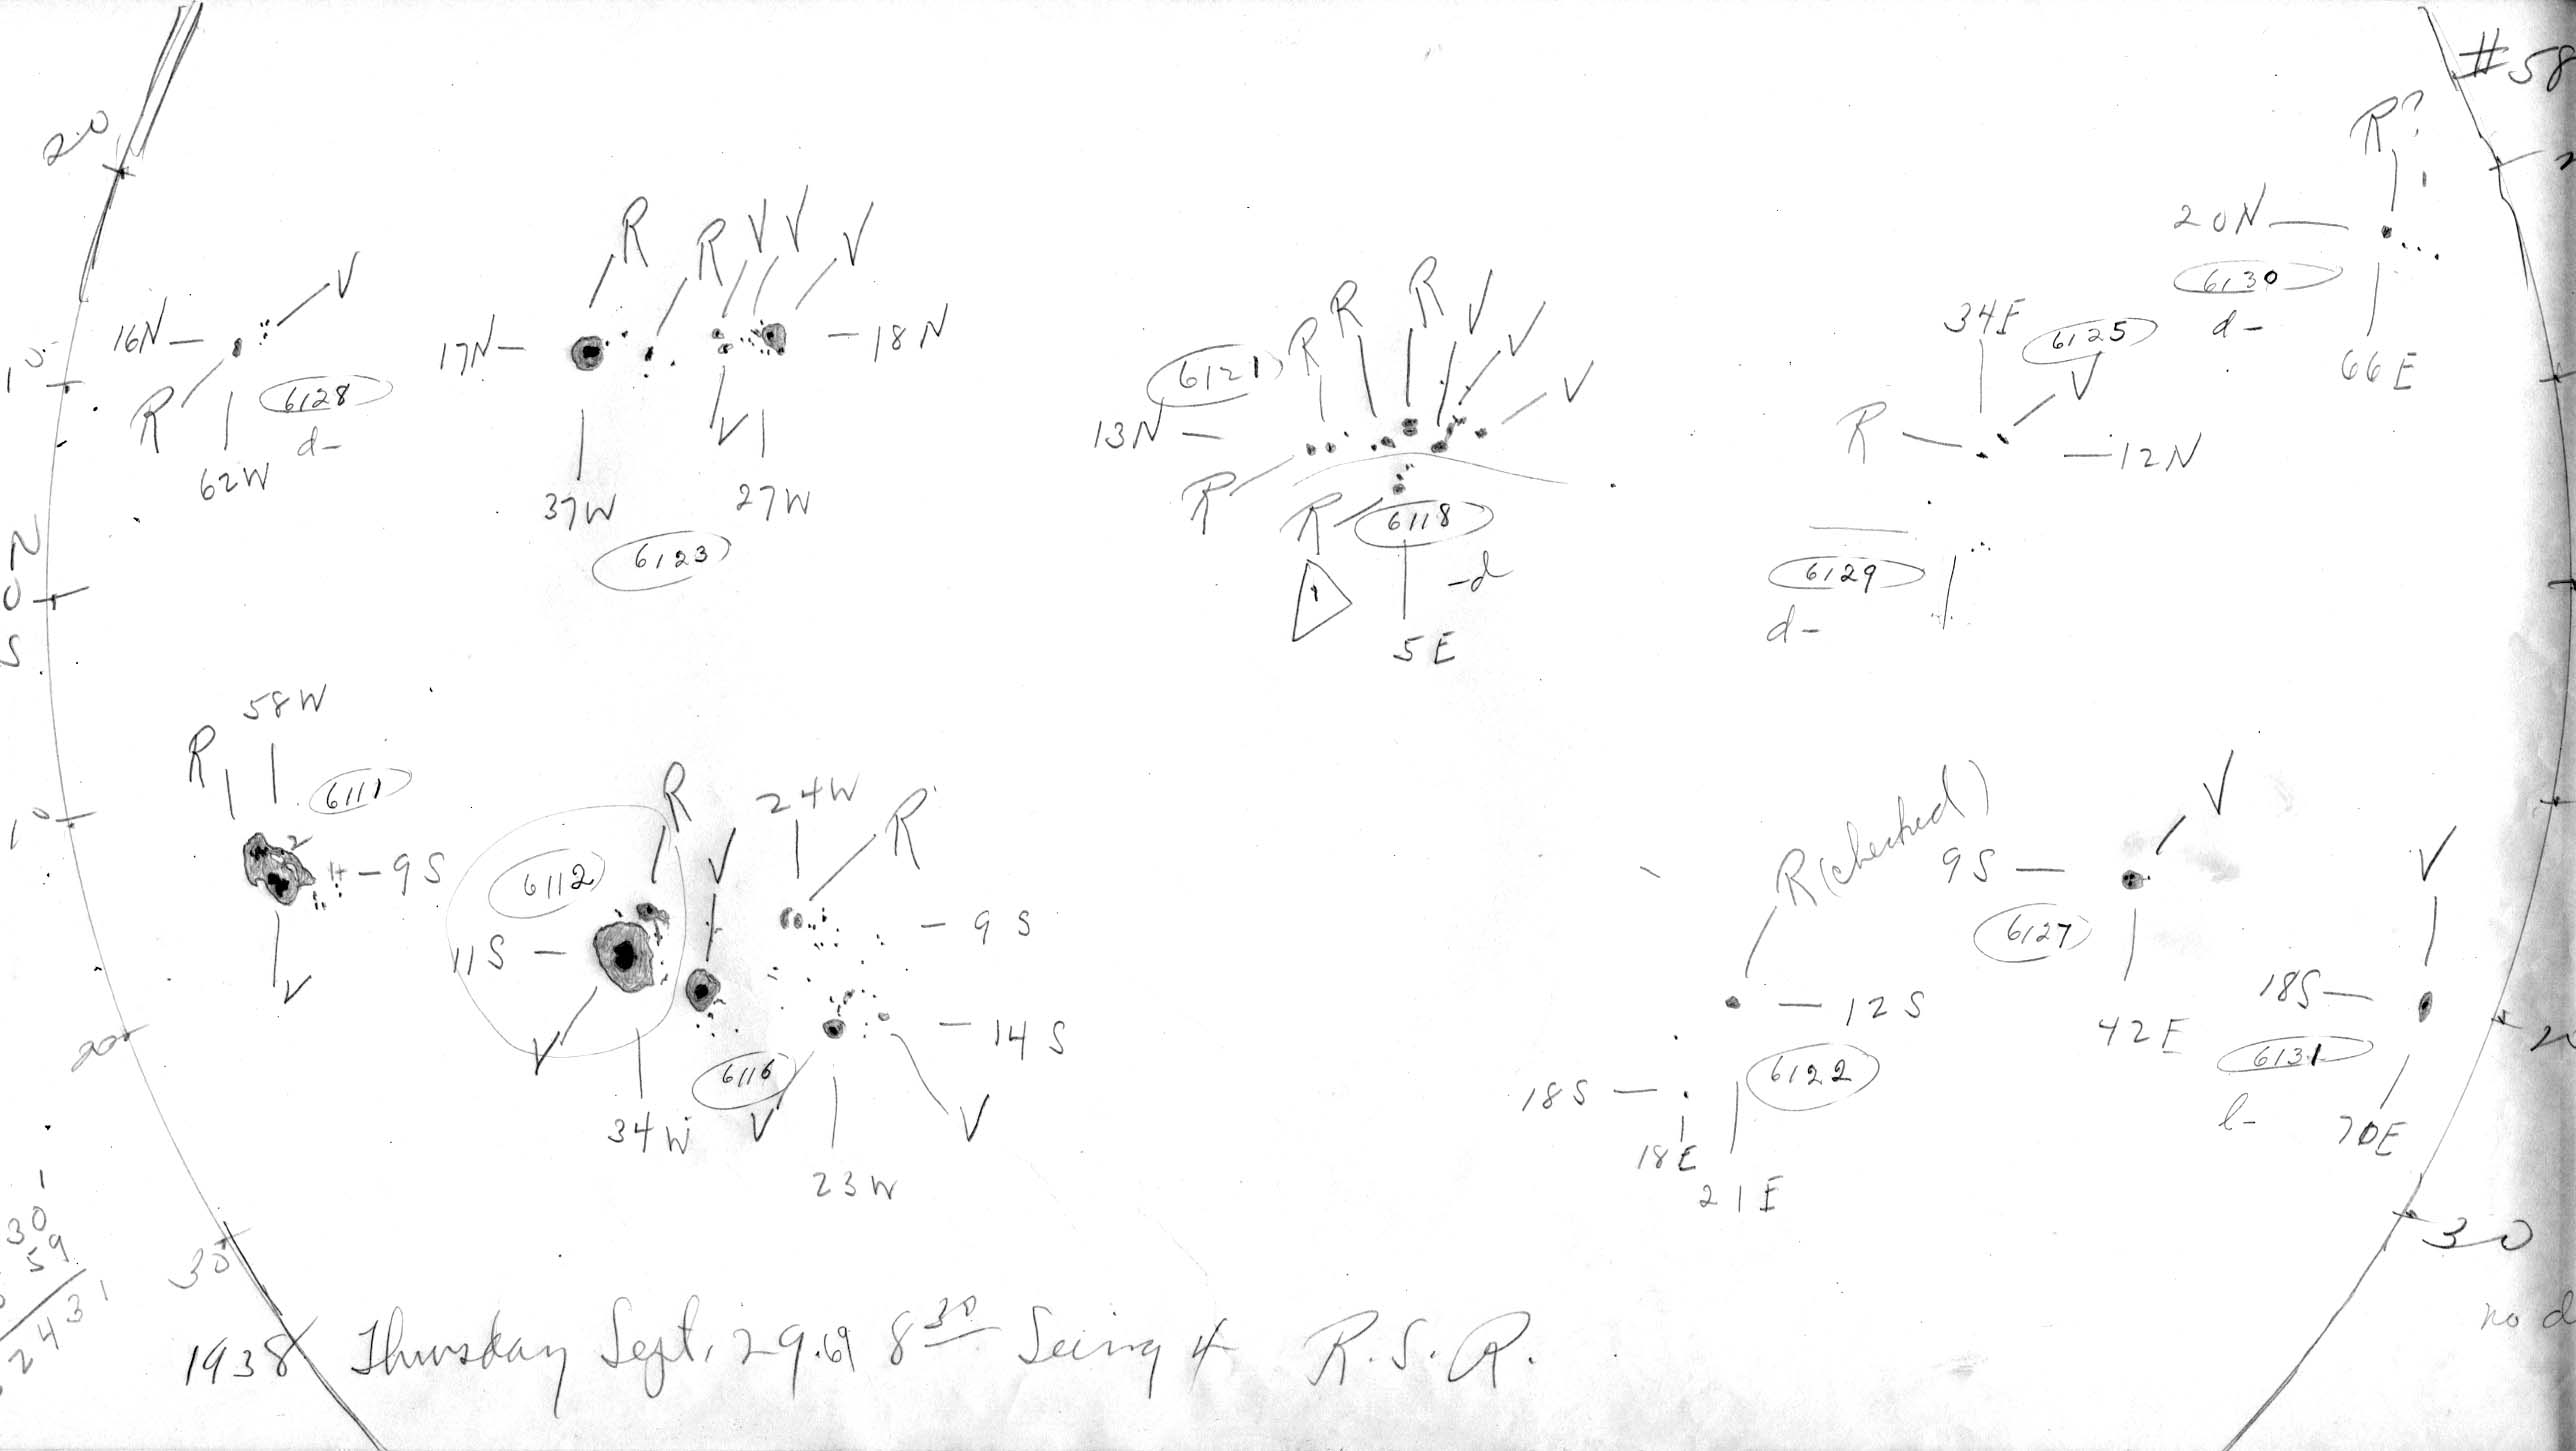 #58
20
R?
20N
6130
d-
66E
R R V V V
V
16N
R
6128
d-
62W
17N
18N
V
37W 27W
6123
R R R V V V
6121
13N
R
R
6118
-d
1
5E
34E
6125
V
R
12N
6129
d-
10
N
0
S
58W
R
6111
2
4
9S
V
10
R
24W
V
R
6112
11S
9S
14S
V
34W
6116
V
V
23W
R (checked)
12S
6122
18S
18E
21E
V
9S
6127
42E
V
18S
6131
l-
70E
20
30
30
1
30
59
2431
no d
1938 Thursday Sept. 29.69 8 30 Seeing 4 R.S.R.